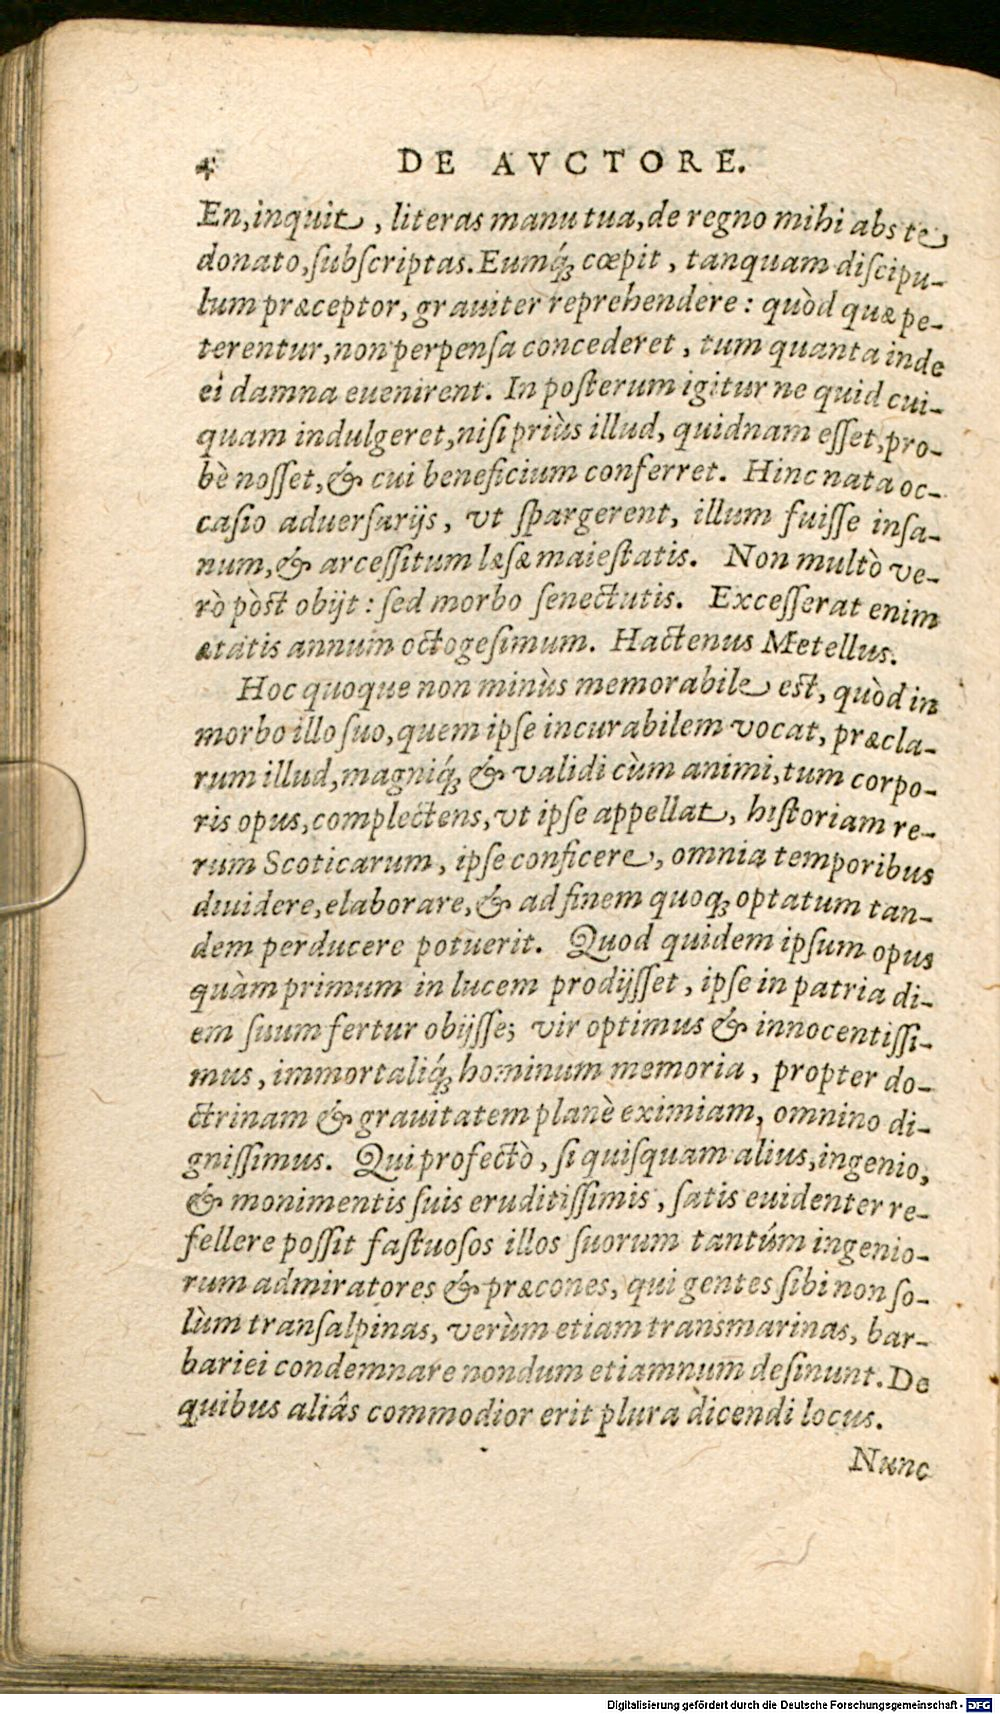 4 DE AVCTORE.
En, inquit, literas manu tua, de regno mihi abs te
donato, ſubſcriptas. Eumq́ꝫ cœpit, tanquam diſcipu-
lum præceptor, grauiter reprehendere: quòd quæ pe-
terentur, non perpenſa concederet, tum quanta inde
ei damna euenirent. In poſterum igitur ne quid cui-
quam indulgeret, niſi priùs illud, quidnam eſſet, pro-
bè noſſet, & cui beneficium conferret. Hinc nata oc-
caſio aduerſarijs, vt ſpargerent, illum fuiſſe inſa-
num, & arceſſitum læſæ maieſtatis. Non multò ve-
rò pòſt obijt: ſed morbo ſenectutis. Exceſſerat enim
ætatis annum octogeſimum. Hactenus Metellus.
Hoc quoque non minùs memorabile eſt, quòd in
morbo illo ſuo, quem ipſe incurabilem vocat, præcla-
rum illud, magniq́ꝫ & validi cùm animi, tum corpo-
ris opus, complectens, vt ipſe appellat, hiſtoriam re-
rum Scoticarum, ipſe conficere, omnia temporibus
diuidere, elaborare, & ad finem quoqꝫ optatum tan-
dem perducere potuerit. Quod quidem ipſum opus
quàm primum in lucem prodijſſet, ipſe in patria di-
em ſuum fertur obijſſe; vir optimus & innocentiſſi-
mus, immortaliq́ꝫ hominum memoria, propter do-
ctrinam & grauitatem planè eximiam, omnino di-
gniſſimus. Qui profectò, ſi quiſquam alius, ingenio,
& monimentis ſuis eruditiſſimis, ſatis euidenter re-
fellere poſſit faſtuoſos illos ſuorum tantúm ingenio-
rum admiratores & præcones, qui gentes ſibi non ſo-
lùm tranſalpinas, verùm etiam transmarinas, bar-
bariei condemnare nondum etiamnum deſinunt. De
quibus aliâs commodior erit plura dicendi locus.
Nunc
Digitalisierung gefördert durch die Deutsche Forschungsgemeinschaft - DFG